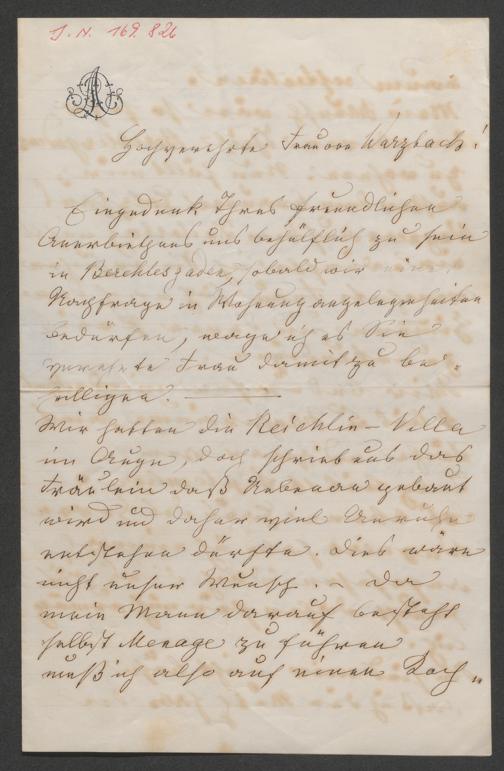 J. N. 169.826
Hochverehrte Frau von Wurzbach!
Eingedenk Ihres freundlichen
Anerbiethens uns behülflich zu sein
in Berchtesgaden, sobald wir einer
Nachfrage in Wohnungangelegenheiten
bedürfen, wage ich es Sie
verehrte Frau damit zu be-
helligen. —
Wir hatten die Reichlin-Villa
im Auge, doch schrieb uns das
Fräulein daß Nebenan gebaut
wird und daher viel Unruhe
entstehen dürfte. Dies wäre
nicht unser Wunsch. – Da
mein Mann darauf besteht
selbst Menage zu führen
muß ich also auf einen Koch-